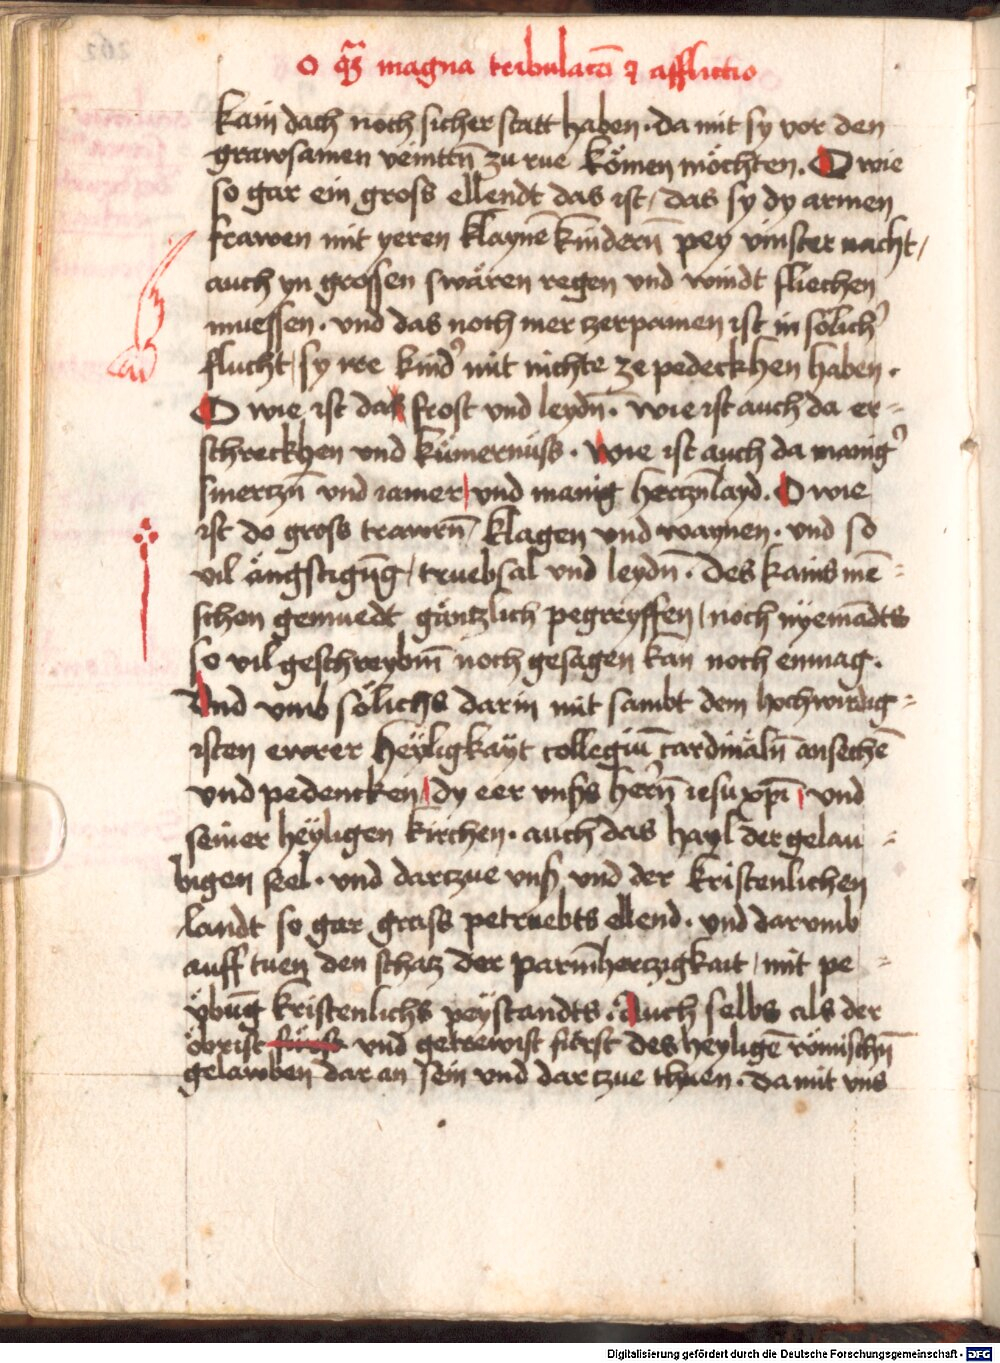 O qm̄ magna tribulatō ⁊ afflictio
kain dach noch sicher statt haben · da mit sy vor den
grawsamen veinttn̄ zu rue kömen möchten. O wie
so gar ein gross ellendt das ist / das sy dy armen
frawen mit yeren klaynē kindern̄ pey vinster nacht /
auch yn grossen swären regen vnd windt fliechen
muessen · vnd das noch mer zerparmen ist in sölich̾
flucht / sy ire kind̾ mit nichte ze pedeckhen haben ·
O wie ist das frost vnd leydn̄ · wie ist auch da er=
schreckhen vnd kümernüss · Wie ist auch da manig̾
smertzn̄ vnd iamer / vnd manig hertznlayd. O wie
ist do gross trawrn̄ / klagen vnd waynen · vnd so
vil ängstigūg / truebsal vnd leydn̄ · des kains mē=
schen gemuedt gäntzlich pegreyffen / noch nyemādts
so vil geschreybm̄ noch gesagen kan noch enmag ·
Vnd vmb sölichs darin mit sambt dem hochwirdig=
isten ewrer heyligkayt collegiū cardinäln̄ ansechē
vnd pedencken / dy eer vnsers herrn̄ iesu xp̄i / vnd
seiner heyligen kirchen · auch das hayl der gelau=
bigen seel · vnd dartzue vns vnd der kristenlichen
landt so gar grass petruebts ellend · vnd darvmb
auff tuen den schatz der parm̄hertzigkait / mit pe=
übūg kristenlichs peystandts · Auch selbs als der
öbrist fürst vnd getrewist fürst des heyligē römischn̄
gelawben dar an sein vnd dartzue thuen · damit vns
Digitalisierung gefördert durch die Deutsche Forschungsgemeinschaft - DFG